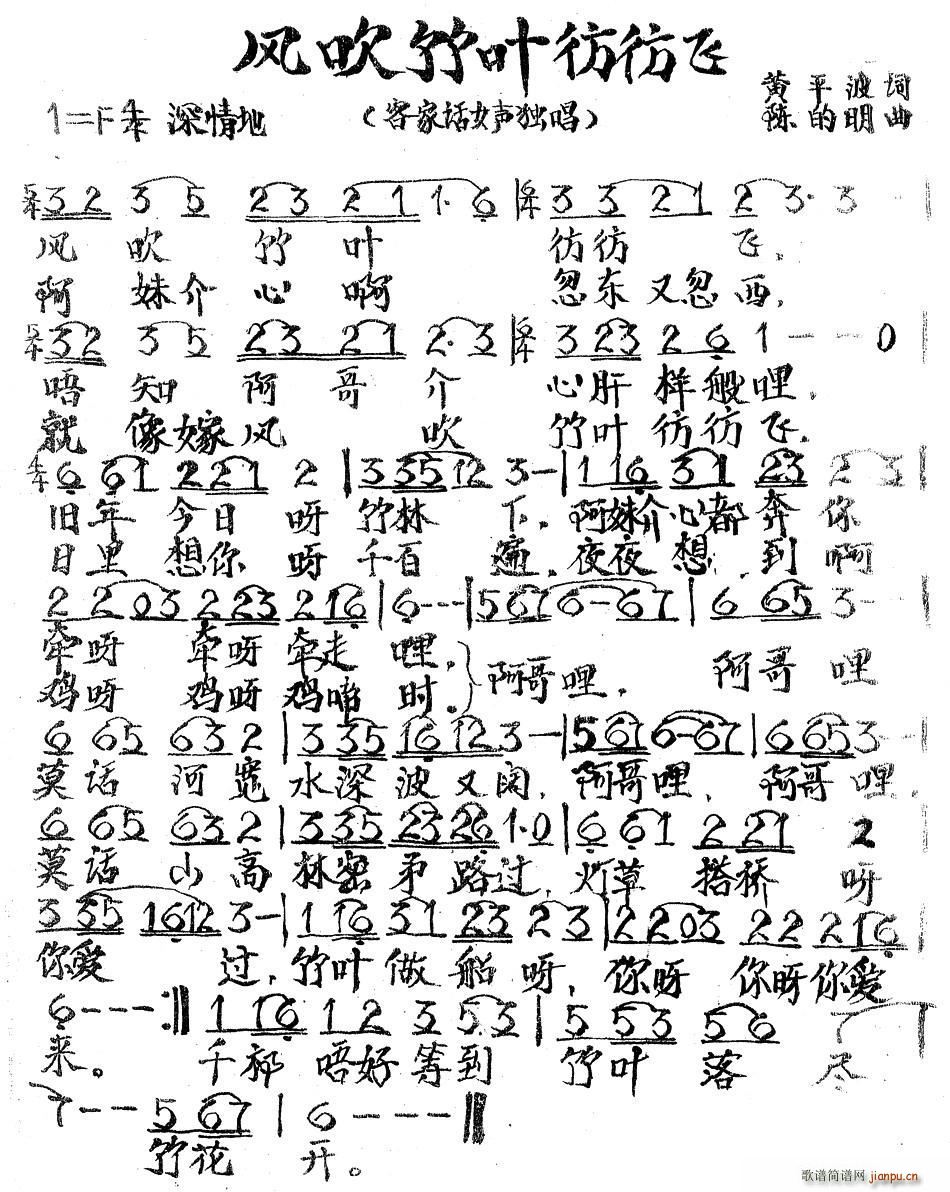 风吹竹叶彷彷飞
黄平波词
1=F 4/4 深情地
(客家话女声独唱)
陈的明曲
5/4 3 2 3 5 2 3 2 1 1· 6 | 6/4 3 3 2 1 2 3· 3 |
风吹竹叶 彷彷飞,
阿妹介心啊 忽东又忽西,
5/4 3 2 3 5 2 3 2 1 2· 3 | 6/4 3 2 3 2 6 1 - - 0
唔知阿哥介 心肝样般哩,
就像嫁风吹 竹叶彷彷飞,
4/4 6 6 1 2 2 1 2 | 3 3 5 1 2 3 - | 1 1 6 3 1 2 3 2 3
旧年今日呀竹林下,阿妹介心都奔你
日里想你呀千百遍,夜夜想到啊
2 2 0 3 2 2 3 2 1 6 | 6 - - - | 5 6 7 6 - 6 7 | 6 6 5 3 - - |
牵呀牵呀牵走哩, 阿哥哩, 阿哥哩
鸡呀鸡呀鸡啼时。
6 6 5 6 3 2 | 3 3 5 1 6 1 2 3 - | 5 6 7 6 - 6 7 | 6 6 5 3 - - |
莫话河宽水深波又阔,阿哥哩,阿哥哩,
6 6 5 6 3 2 | 3 3 5 2 3 2 6 1· 0 | 6 6 1 2 2 1 2
莫话山高林密 路过,灯草搭桥呀
3 3 5 1 6 1 2 3 - | 1 1 6 3 1 2 3 2 3 | 2 2 0 3 2 2 2 1 6 |
你爱过,竹叶做船呀,你呀你呀你爱
6 - - - :‖ 1 1 6 1 2 3 5 3 | 5 5 3 5 6 7
来。千祈唔好等到竹叶落尽
7 - - 5 6 7 | 6 - - - ‖
竹花开。
歌谱简谱网
jianpu.cn